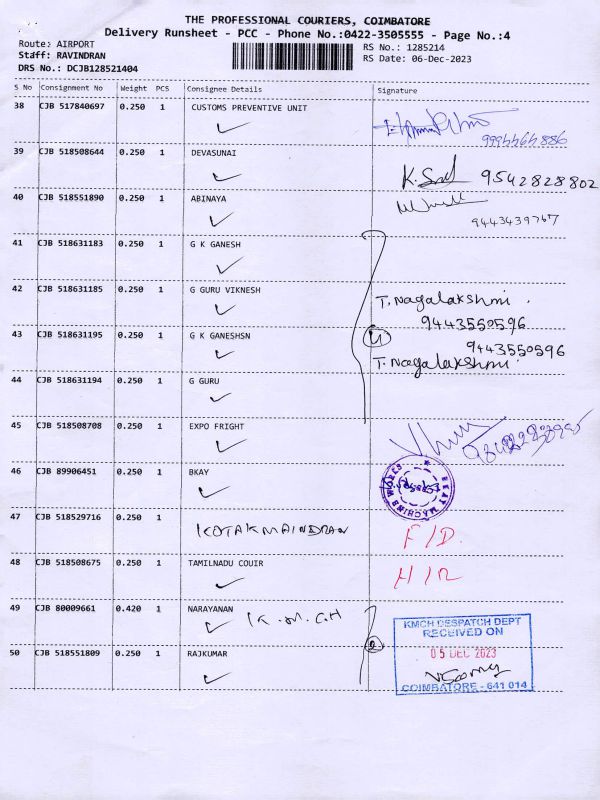 THE PROFESSIONAL COURIERS, COIMBATORE
Delivery Runsheet - PCC - Phone No.:0422-3505555 - Page No.:4
Route: AIRPORT
RS No.: 1285214
Staff: RAVINDRAN
RS Date: 06-Dec-2023
DRS No.: DCJB128521404
S No Consignment No Weight PCS Consignee Details Signature
38 CJB 517840697 0.250 1 CUSTOMS PREVENTIVE UNIT
39 CJB 518508644 0.250 1 DEVASUNAI
9542828802
40 CJB 518551890 0.250 1 ABINAYA
9443439767
41 CJB 518631183 0.250 1 G K GANESH
42 CJB 518631185 0.250 1 G GURU VIKNESH
T. Nagalakshmi.
9443550596
43 CJB 518631195 0.250 1 G K GANESHSN
4
9443550596
T. Nagalakshmi.
44 CJB 518631194 0.250 1 G GURU
45 CJB 518508708 0.250 1 EXPO FRIGHT
46 CJB 89906451 0.250 1 BKAY
47 CJB 518529716 0.250 1 KOTAKMAINDRAN F/D.
48 CJB 518508675 0.250 1 TAMILNADU COUIR H/R
49 CJB 80009661 0.420 1 NARAYANAN K.M.C.H
KMCH DESPATCH DEPT
RECEIVED ON
50 CJB 518551809 0.250 1 RAJKUMAR 2
05 DEC 2023
COIMBATORE - 641 014